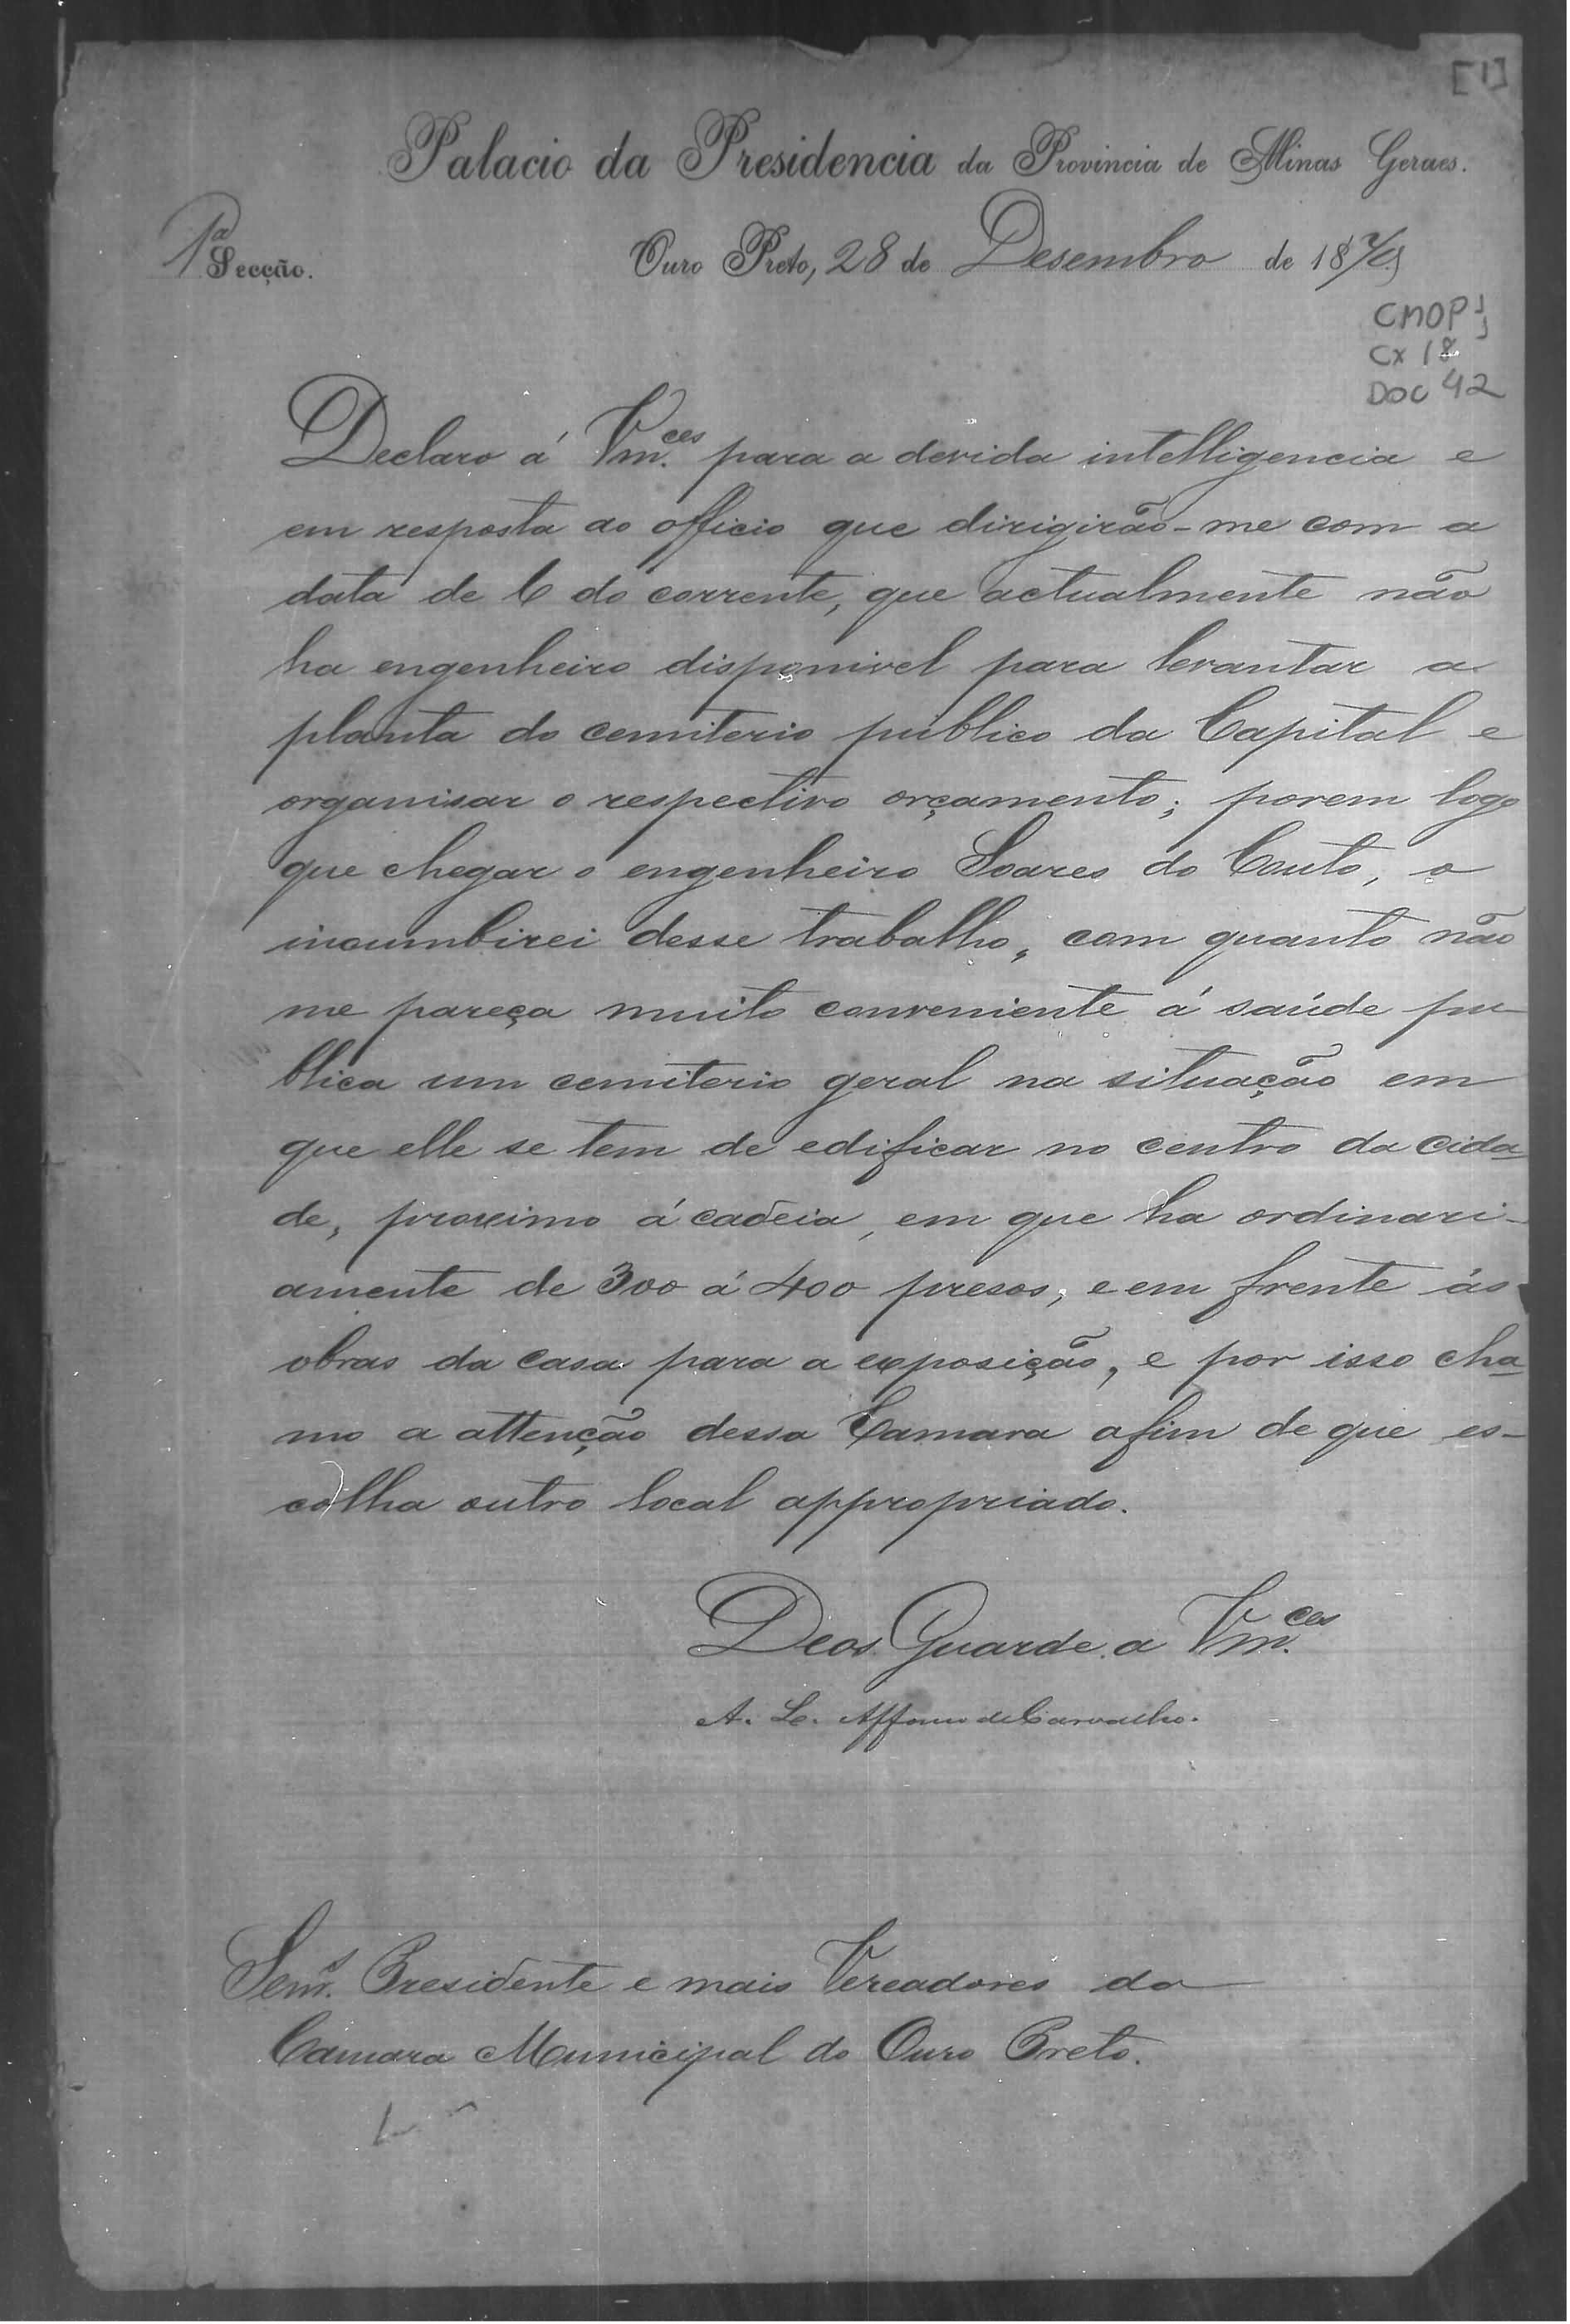 [1]
Palacio da Presidencia da Provincia de Minas Geraes.
1ª Secção.
Ouro Preto, 28 de Desembro de 1870
CMOP
Cx 18
DOC 42
Declaro á Vm.ces para a devida intelligencia e
em resposta ao officio que dirigirão-me com a
data de 6 do corrente, que actualmente não
ha engenheiro disponivel para levantar a
planta do cemiterio publico da Capital e
organisar o respectivo orçamento; porem logo
que chegar o engenheiro Soares do Couto, o
incumbirei desse trabalho, com quanto não
me pareça muito conveniente á saúde pu-
blica um cemiterio geral na situação em
que elle se tem de edificar no centro da cida-
de, proximo á cadeia, em que ha ordinari-
amente de 300 á 400 presos, e em frente ás
obras da casa para a exposição, e por isso cha-
mo a attenção dessa Camara afim de que es-
colha outro local appropriado.
Deos Guarde a Vm.ces
A. L. Affonso de Carvalho.
Senr.s Presidente e mais Vereadores da
Camara Municipal do Ouro Preto.